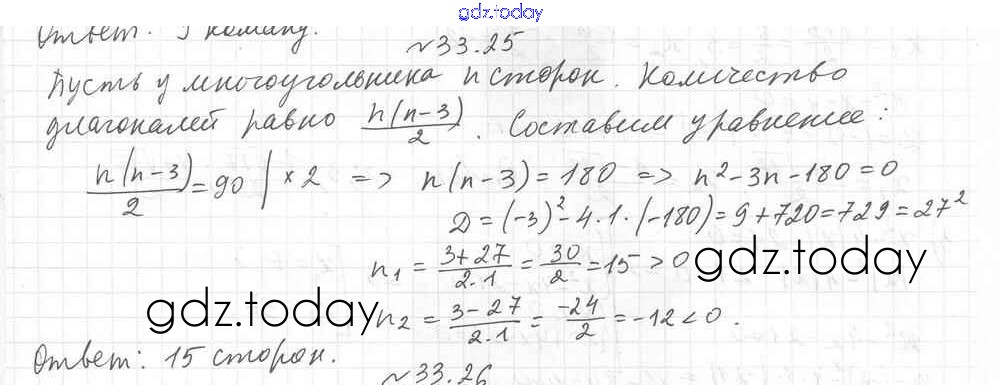 gdz.today
Ответ: 3 команд.
№33.25
Пусть у многоугольника n сторон. Количество
диагоналей равно n(n-3)/2. Составим уравнение:
n(n-3)/2 = 90 | ×2 => n(n-3) = 180 => n²-3n-180=0
D = (-3)²-4·1·(-180) = 9+720=729=27²
n₁ = 3+27/2·1 = 30/2 = 15 > 0 gdz.today
gdz.today n₂ = 3-27/2·1 = -24/2 = -12 < 0.
Ответ: 15 сторон.
№33.26